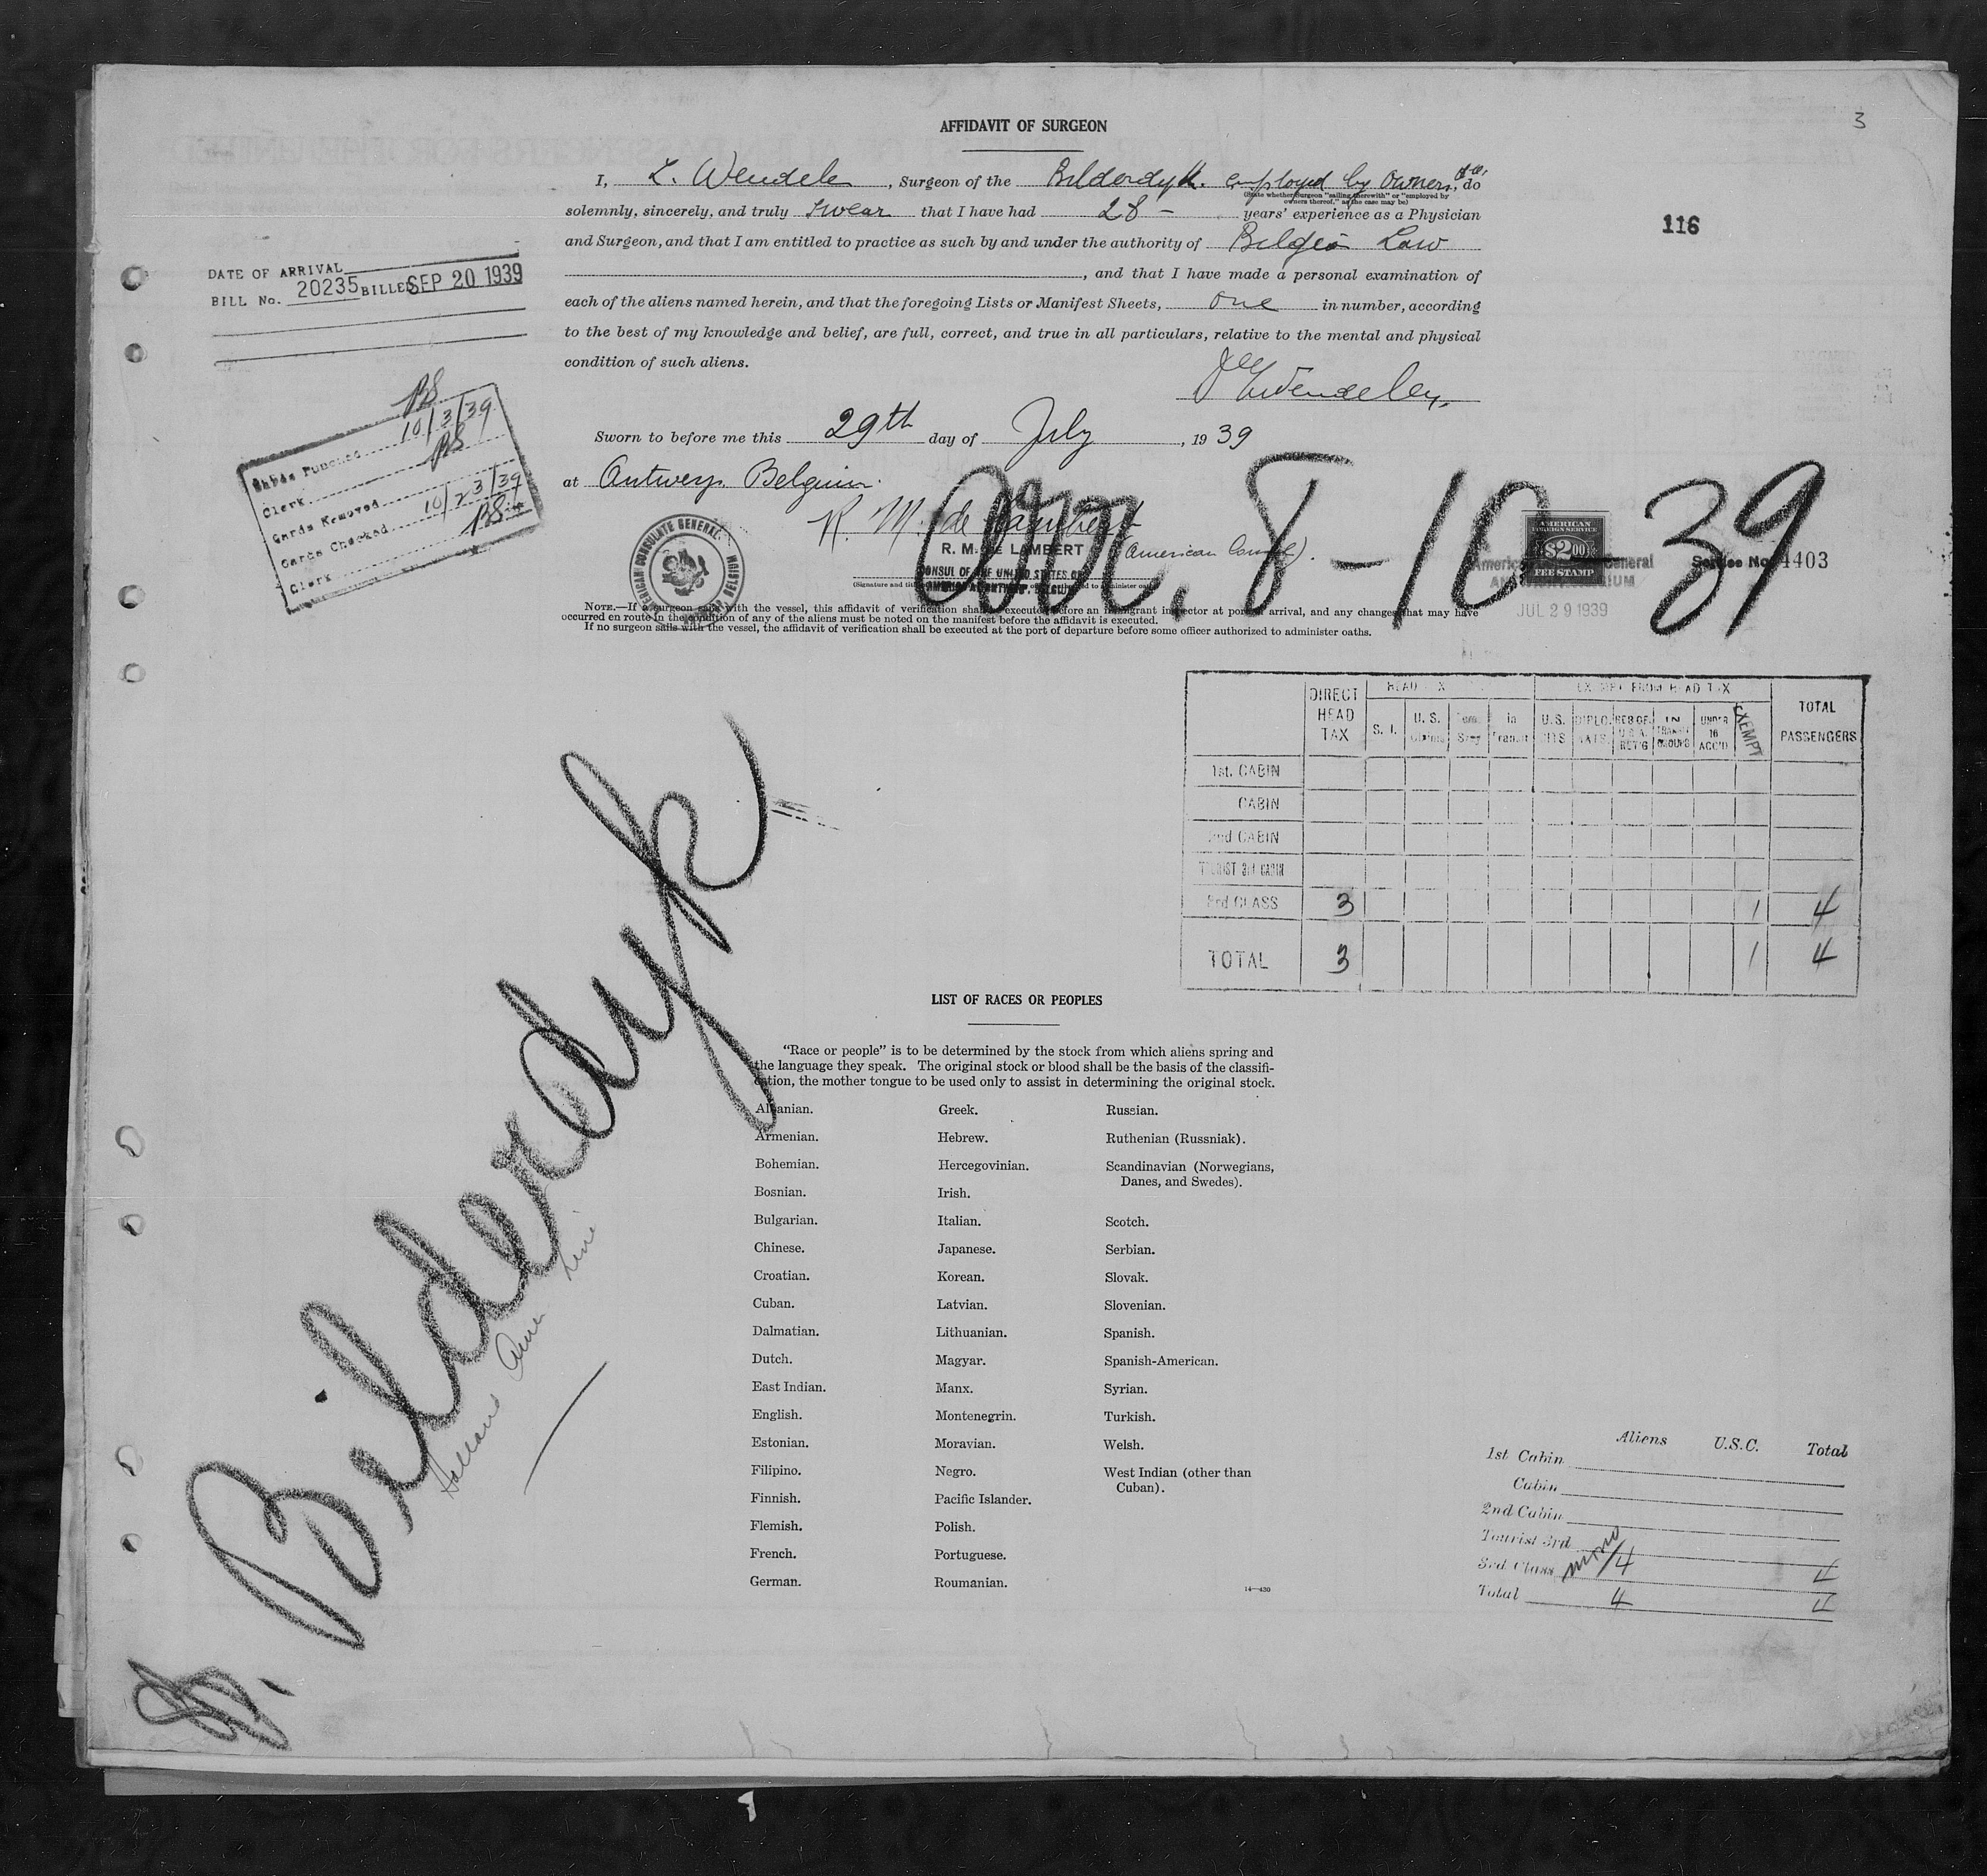 AFFIDAVIT OF SURGEON
3
I, L. Wendelen, Surgeon of the Bilderdyk. employed by Owners, do
(State whether Surgeon "sailing therewith" or "employed by
owners thereof," as the case may be)
solemnly, sincerely, and truly swear that I have had 28 - years' experience as a Physician
116
and Surgeon, and that I am entitled to practice as such by and under the authority of Belgian Law
, and that I have made a personal examination of
each of the aliens named herein, and that the foregoing Lists or Manifest Sheets, one in number, according
to the best of my knowledge and belief, are full, correct, and true in all particulars, relative to the mental and physical
condition of such aliens.
Wendelen
DATE OF ARRIVAL
BILL No. 20235 BILLED SEP 20 1939
Sworn to before me this 29th day of July, 1939
at Antwerp Belgium.
Punched 10/3/39
Clerk BS
Cards Removed
Cards Checked 10/23/39
Clerk BS
R. M. de Lambert
R. M. DE LAMBERT (American Consul).
CONSUL OF THE UNITED STATES OF
AMERICAN CONSULATE GENERAL
arr. 8-10-39
AMERICAN
FOREIGN SERVICE
$2.00
FEE STAMP
Service No. 4403
JUL 29 1939
NOTE.—If a surgeon sails with the vessel, this affidavit of verification shall be executed before an immigrant inspector at port of arrival, and any changes that may have
occurred en route in the condition of any of the aliens must be noted on the manifest before the affidavit is executed.
If no surgeon sails with the vessel, the affidavit of verification shall be executed at the port of departure before some officer authorized to administer oaths.
DIRECT HEAD TAX
HEAD TAX
EXEMPT FROM HEAD TAX
TOTAL PASSENGERS
S. I.
U. S. Claims
In Transit
U.S. CITS
DIPLO. MATS.
RES OF U.S.A. RET'G
IN TRANSIT GROUPS
UNDER 16 ACC'D
EXEMPT
1st. CABIN
CABIN
2nd CABIN
TOURIST 3rd CABIN
3rd CLASS 3 1 4
TOTAL 3 1 4
S. Bilderdyk
Holland Amer Line
LIST OF RACES OR PEOPLES
"Race or people" is to be determined by the stock from which aliens spring and
the language they speak. The original stock or blood shall be the basis of the classifi-
cation, the mother tongue to be used only to assist in determining the original stock.
Albanian.
Armenian.
Bohemian.
Bosnian.
Bulgarian.
Chinese.
Croatian.
Cuban.
Dalmatian.
Dutch.
East Indian.
English.
Estonian.
Filipino.
Finnish.
Flemish.
French.
German.
Greek.
Hebrew.
Hercegovinian.
Irish.
Italian.
Japanese.
Korean.
Latvian.
Lithuanian.
Magyar.
Manx.
Montenegrin.
Moravian.
Negro.
Pacific Islander.
Polish.
Portuguese.
Roumanian.
Russian.
Ruthenian (Russniak).
Scandinavian (Norwegians,
Danes, and Swedes).
Scotch.
Serbian.
Slovak.
Slovenian.
Spanish.
Spanish-American.
Syrian.
Turkish.
Welsh.
West Indian (other than
Cuban).
14—430
Aliens U.S.C. Total
1st Cabin
Cabin
2nd Cabin
Tourist 3rd
3rd Class 4 4
Total 4 4